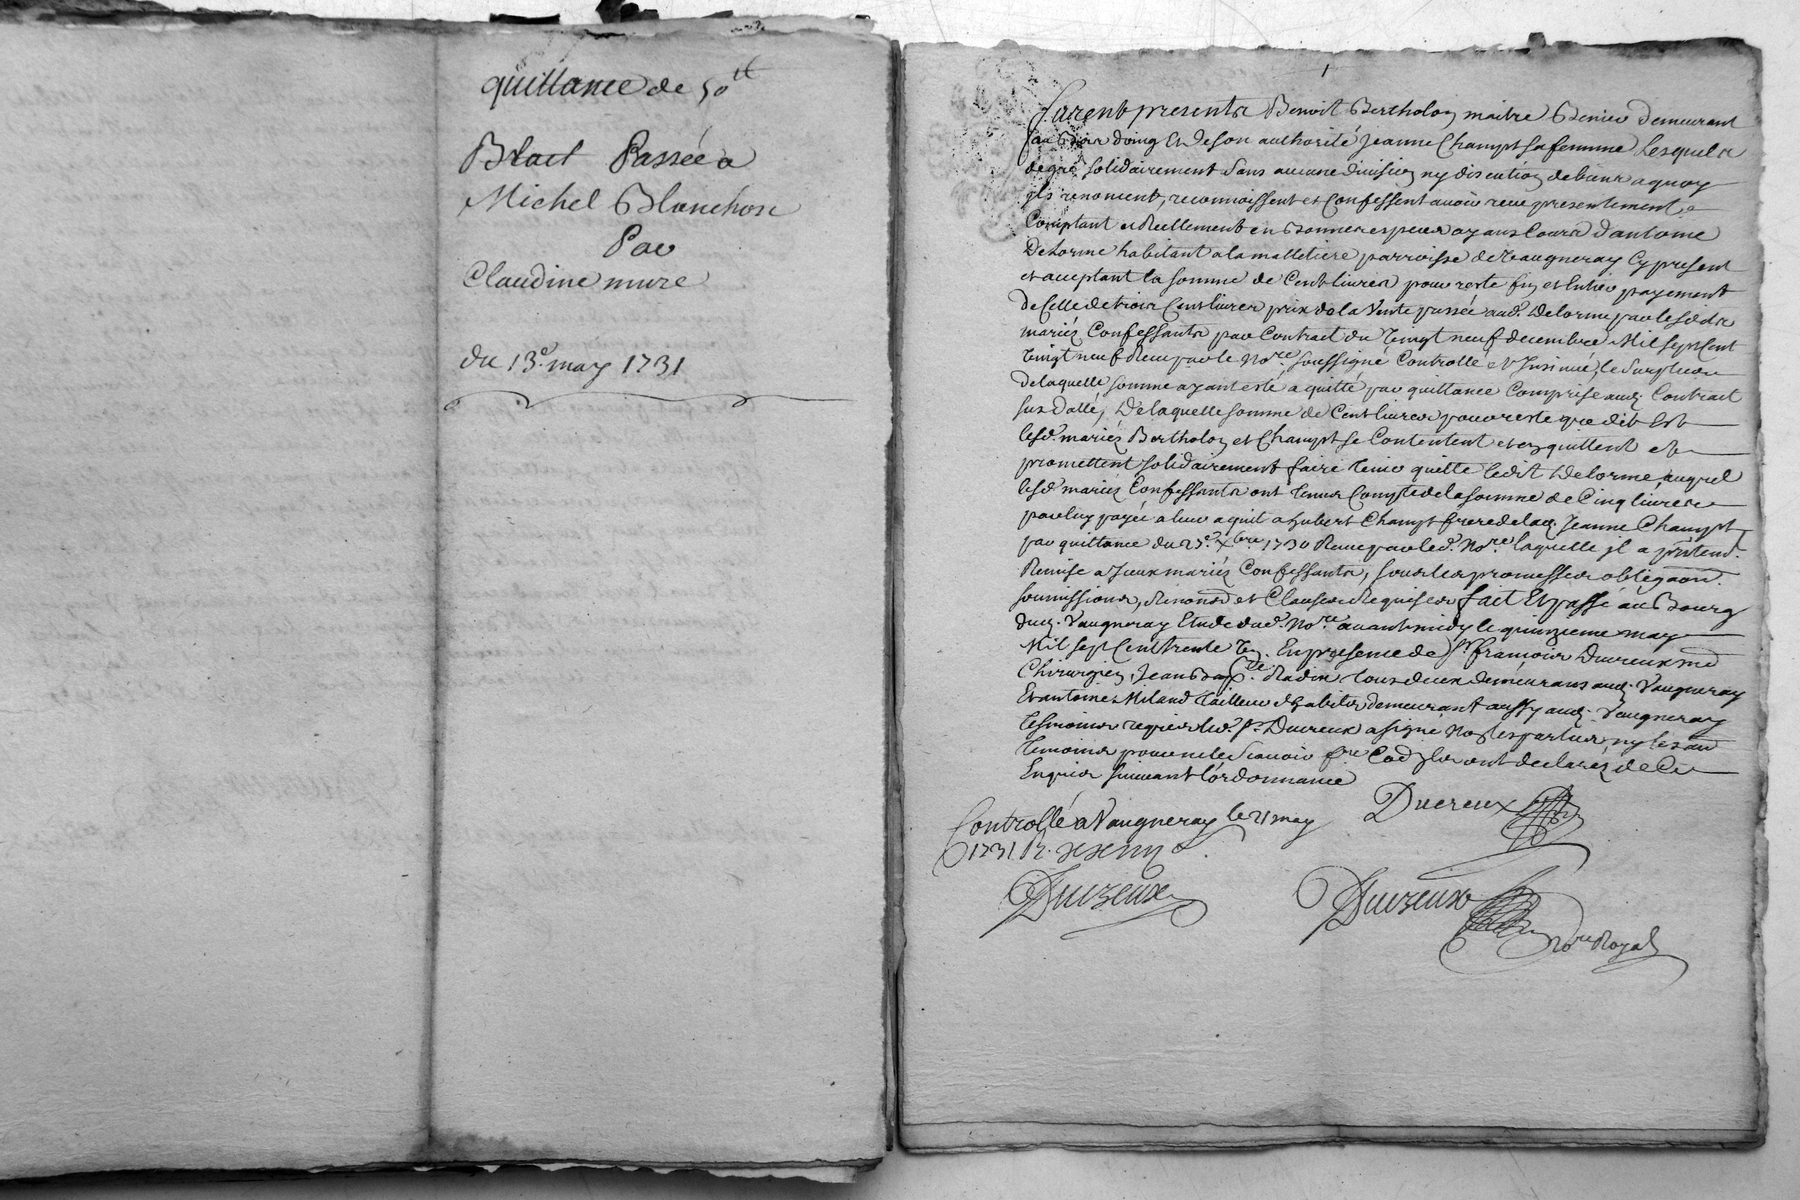 quittance de 50ᵗᵗ
Passée a
Michel Blanchon
Par
Claudine mure
du 13ᵉ. may 1731
Furent presents Benoit Bertholon maitre demeurant
et de son authorité Jeanne Champt sa femme Lesquels
de gré solidairement sans aucune division ny discution de biens a quoy
ils renoncent, reconnoissent et Confessent avoir receu presentement,
Comptant et Reellement en ayans Cours d'antoine
Delorme habitant a la malletiere parroisse de Vaugneray Cy present
et acceptant la somme de Cent livres pour reste fin et Entier payement
de Celle de trois Cent livres prix de la Vente passée aud. Delorme par lesdits
mariéz Confessants par Contract du Vingt neuf decembre Mil sept Cent
Vingt neuf Receu par le Noʳᵉ soussigné Controllé et Insinué, le Surplus
de laquelle somme ayant esté aquitté par quittance Comprise aud. Contract
sus datté, De laquelle somme de Cent livres pour reste que dit Est
lesd. mariéz Bertholon et Champt se Contentent et en quittent et
promettent solidairement faire tenir quitte ledit Delorme auquel
lesd. mariéz Confessants ont tenus Compte de la somme de Cinq livres
par luy payée a leur aquit a hubert Champt frere de lad. Jeanne Champt
par quittance du 27ᵉ. Xbre 1730 Receue par led. Noʳᵉ. laquelle il a
Remise a Iceux mariéz Confessants, sous les promesses obligaon.
soumissions, Renonons et Clauses Requises fait Et passé au Bourg
dud. Vaugneray Etude dud. Noʳᵉ. avant midy le quinzieme may
Mil sept Cent trente Un. En presence de Sʳ. francois Ducreux mᵈ
Chirurgien, Jean Bapᵗᵉ. Radix tous deux demeurans aud. Vaugneray
Et antoine Miland Tailleur d'habits demeurant aussy aud. Vaugneray
tesmoins requis led. Sʳ. Ducreux a signé Non les parties, ny les au
temoins pour ne le Scavoir fʳᵉ ont declaréz de Ce
Enquis suivant l'ordonnance
Ducreux
Controllé a Vaugneray le 21 may
1731 R.
Ducreux
Ducreux
Noʳᵉ Royal